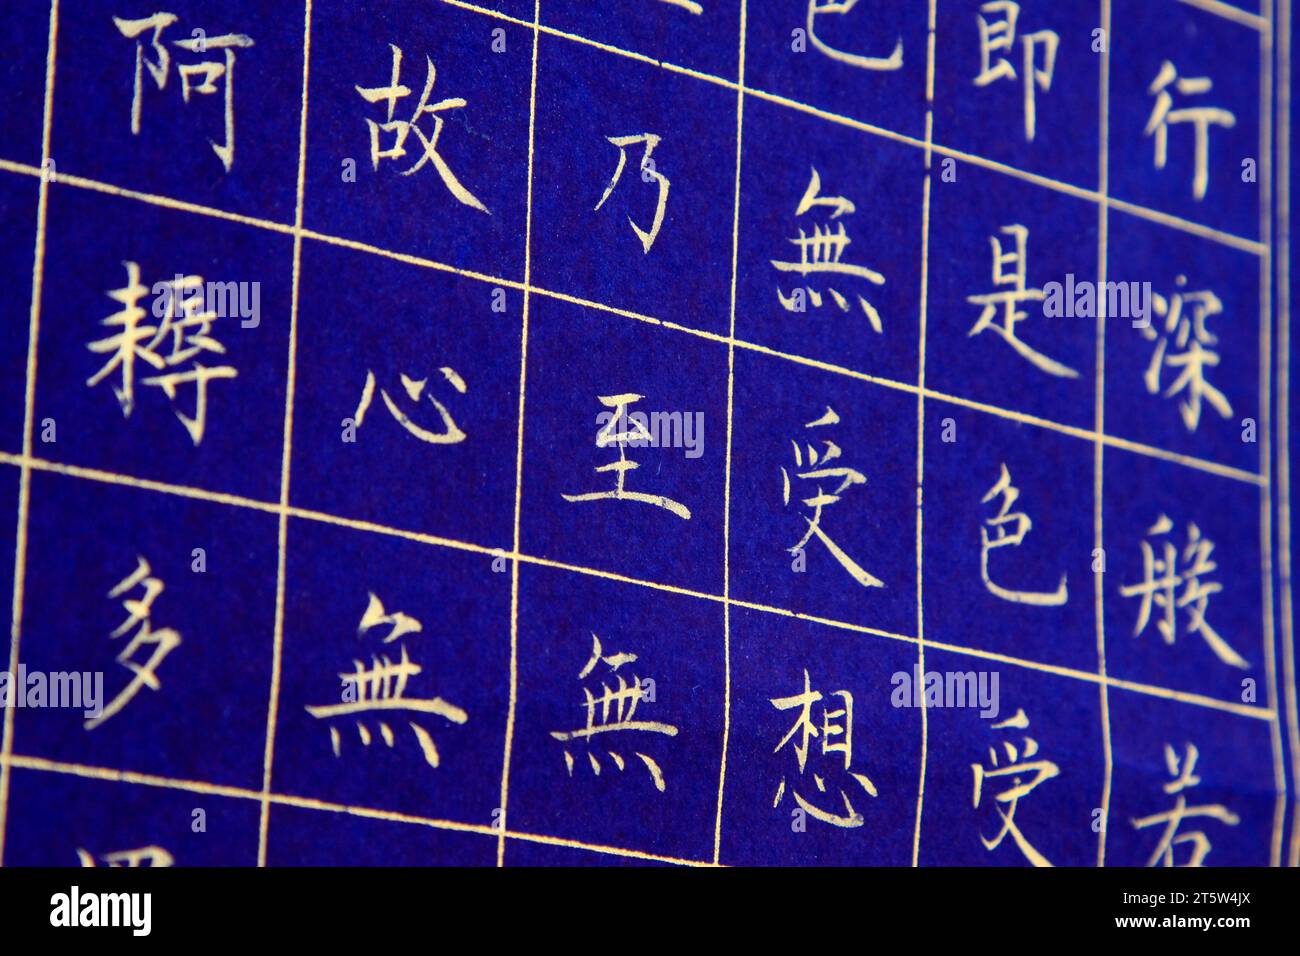 行深般若
即是色受
色無受想
乃至無
故心無
阿耨多羅
alamy
Image ID: 2T5W4JX
www.alamy.com